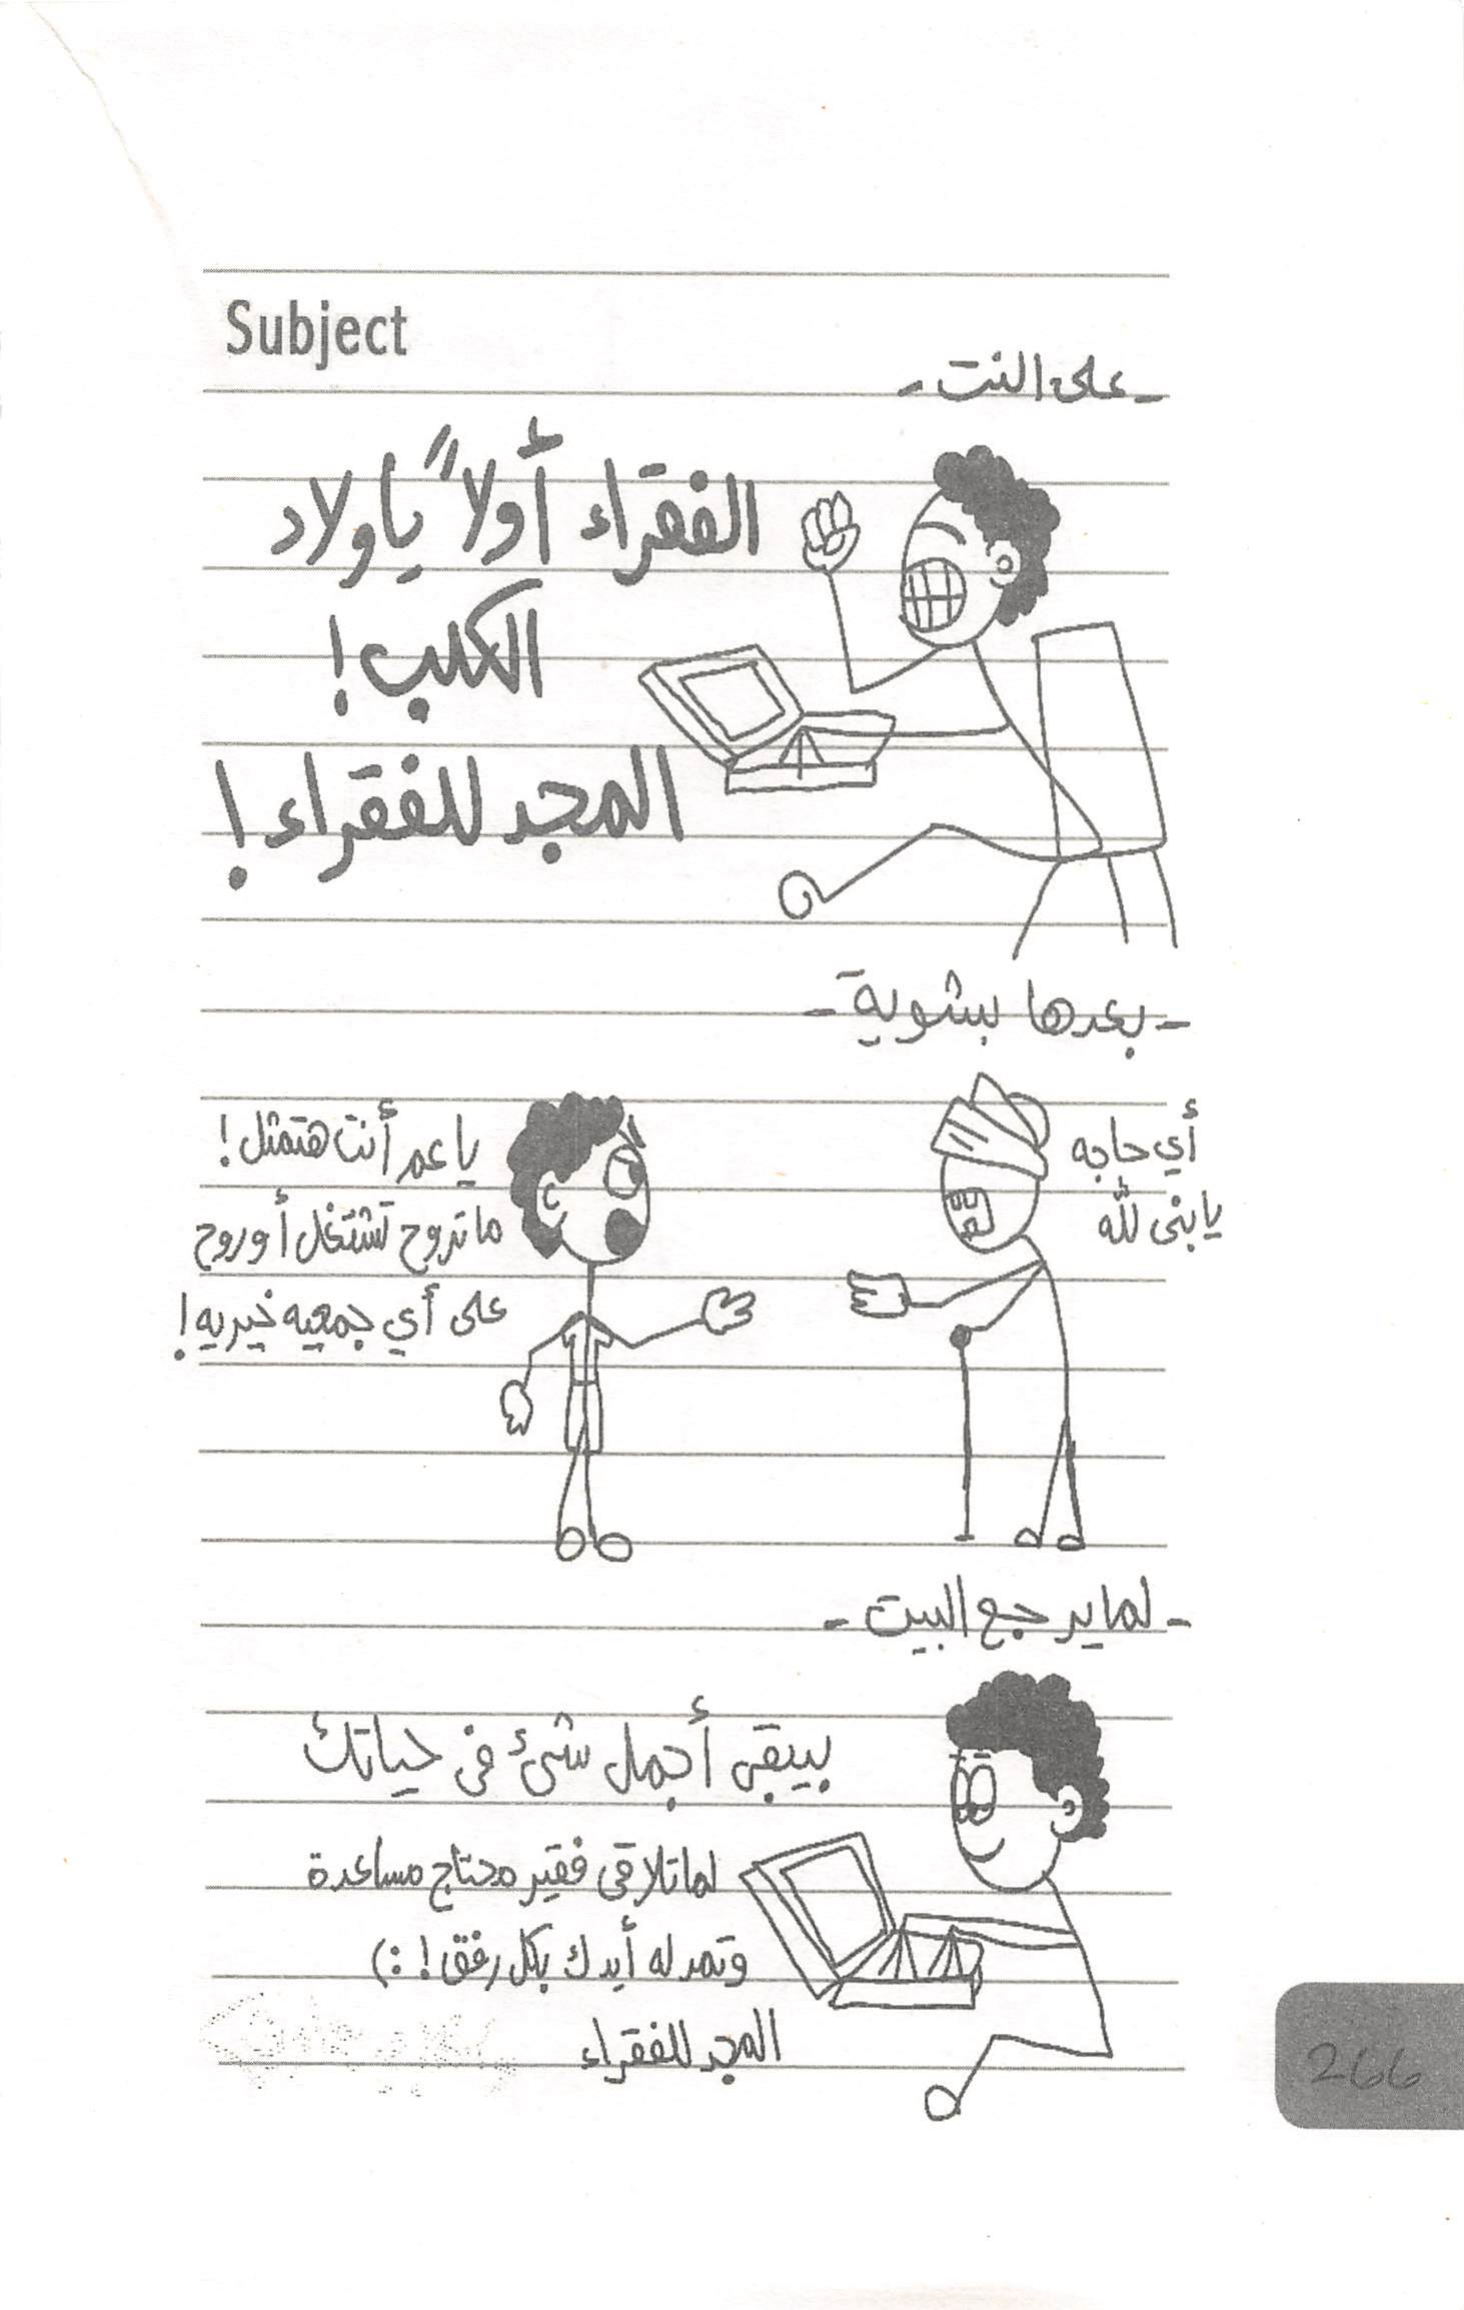 Subject
- على النت -
الفقراء أولاً ياولاد
الكلب !
المجد للفقراء !
- بعدها بشوية -
أي حاجه
يابنى لله
ياعم أنت هتمثل !
ماتروح تشتغل أوروح
على أي جمعيه خيريه !
- لمايرجع البيت -
بيبقى أجمل شئ فى حياتك
لماتلاقى فقير محتاج مساعدة
وتمد له أيدك بكل رفق ! :)
المجد للفقراء
266